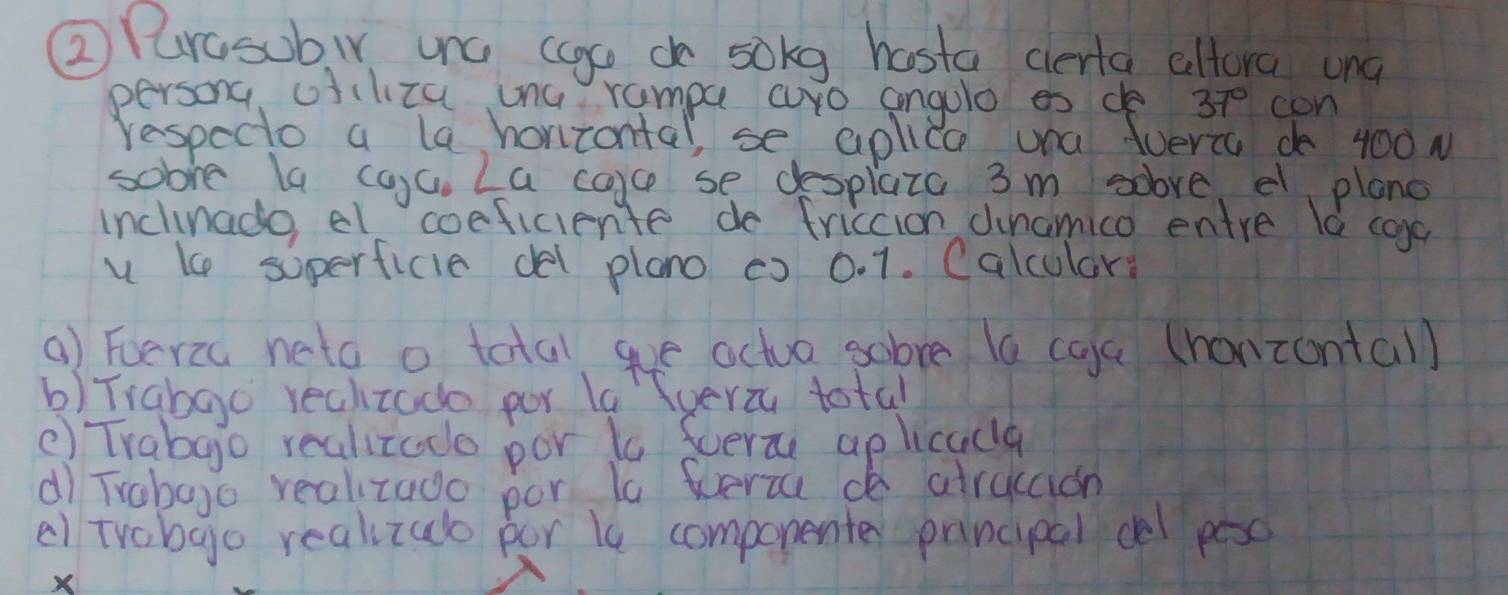 ② Para subir una caja de 50kg hasta cierta altura una
persona, utiliza una rampa cuyo angulo es de 37° con
respecto a la horizontal, se aplica una fuerza de 400 N
sobre la caja. La caja se desplaza 3m sobre el plano
inclinado, el coeficiente de friccion dinamico entre la caja
y la superficie del plano es 0.1. Calcular:
a) Fuerza neta o total que actua sobre la caja (horizontal)
b) Trabajo realizado por la fuerza total
c) Trabajo realizado por la fuerza aplicada
d) Trabajo realizado por la fuerza de atracción
e) Trabajo realizado por la componente principal del peso
x